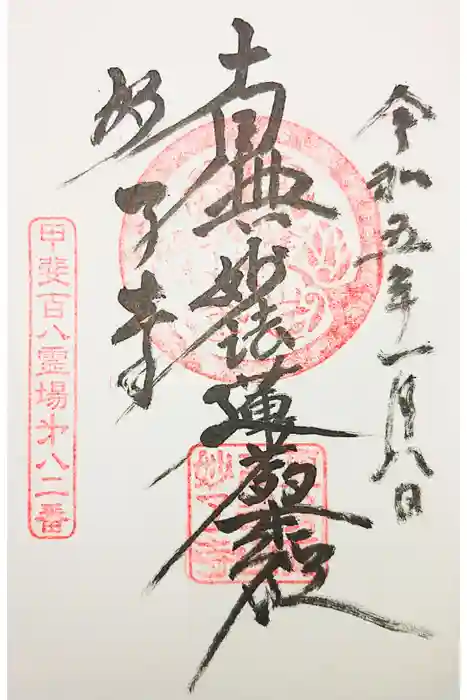 令和五年一月八日
南無妙法蓮華経
妙了寺
甲斐百八霊場第八二番